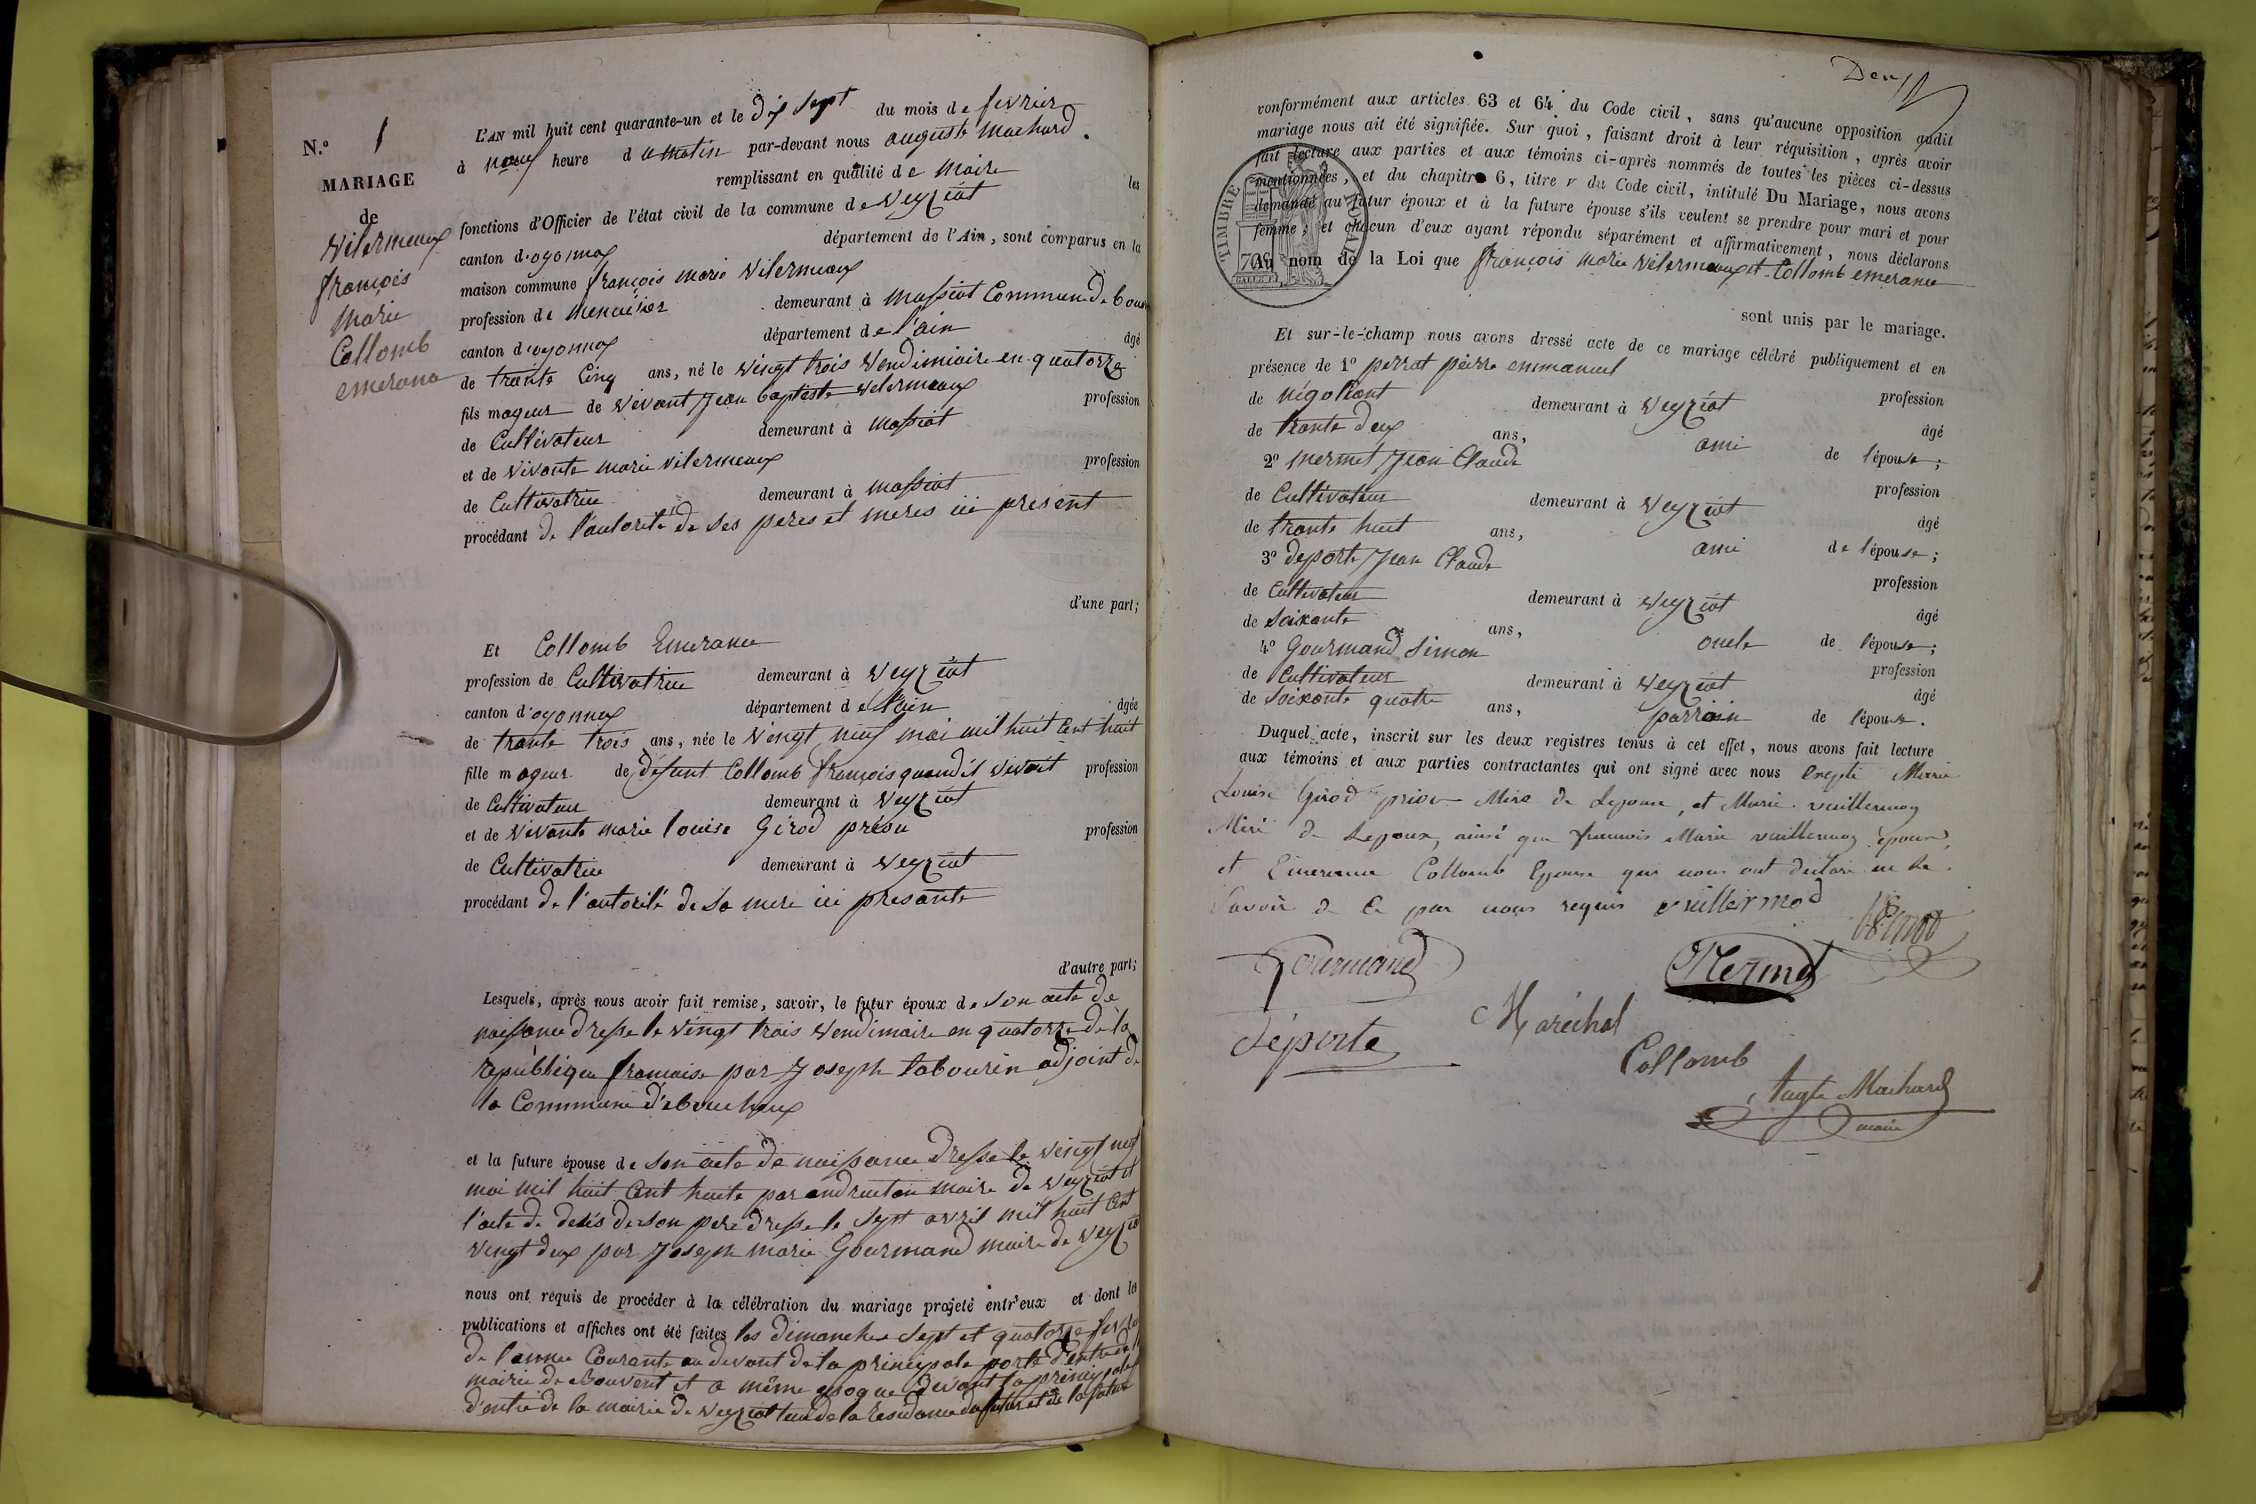 N.º 1
MARIAGE
de
Vilermeaux
françois
marie
Collomb
emerance
L'AN mil huit cent quarante-un et le dix sept du mois de fevrier
à neuf heure du matin par-devant nous auguste machard
remplissant en qualité de maire les
fonctions d'Officier de l'état civil de la commune de veyziat
canton d'oyonnax département de l'Ain, sont comparus en la
maison commune françois marie vilermeaux
profession de menuisier demeurant à massiat Commun de bouv
canton d'oyonnax département de l'ain âgé
de trante Cinq ans, né le vingt trois vendimiaire en quatorze
fils mageur de vivant Jean baptiste vilermeaux profession
de Cultivateur demeurant à massiat
et de vivante marie vilermeaux profession
de Cultivatrice demeurant à massiat
procédant de l'autorité de ses peres et meres ici présent
d'une part;
Et Collomb Emerance
profession de Cultivatrice demeurant à veyziat
canton d'oyonnax département de l'ain âgée
de trante trois ans, née le vingt neuf mai mil huit Cent huit
fille mageur de défunt Collomb françois quand il vivait profession
de Cultivateur demeurant à veyziat
et de vivante marie louise Girod profession
de Cultivatrice demeurant à veyziat
procédant de l'autorité de sa mere ici presante
d'autre part;
Lesquels, après nous avoir fait remise, savoir, le futur époux de son acte de
naissance dresse le vingt trois vendimaire an quatorze de la
république francaise par Joseph tabourin adjoint de
la Commune d'ebouchoux
et la future épouse de son acte de naissance dresse le vingt neuf
mai mil huit Cent huite par maire de veyziat et
l'acte de desés de son pere dresse le sept avril mil huit Cent
vingt deux par Joseph marie Gourmand maire de veyziat
nous ont requis de procéder à la célébration du mariage projeté entr'eux et dont les
publications et affiches ont été faites les dimanches sept et quatorze fevrier
de l'annee Courante au devant de la principale porte d'entre de la
mairie de Bouvent et a même epoque devant la principale
d'entré de la mairie de veyziat lieu de la residance du futur et de la future
Deux
conformément aux articles 63 et 64 du Code civil, sans qu'aucune opposition audit
mariage nous ait été signifiée. Sur quoi, faisant droit à leur réquisition, après avoir
fait lecture aux parties et aux témoins ci-après nommés de toutes les pièces ci-dessus
mentionnées, et du chapitre 6, titre v du Code civil, intitulé Du Mariage, nous avons
demandé au futur époux et à la future épouse s'ils veulent se prendre pour mari et pour
femme; et chacun d'eux ayant répondu séparément et affirmativement, nous déclarons
Au nom de la Loi que françois marie vilermeaux et Collomb emerance
TIMBRE ROYAL
sont unis par le mariage.
Et sur-le-champ nous avons dressé acte de ce mariage célébré publiquement et en
présence de 1º perrat pierre emmanuel profession
de négotiant demeurant à veyziat âgé
de trante deux ans, ami de l'épouse;
2º mermet Jean Claude profession
de Cultivateur demeurant à veyziat âgé
de trante huit ans, ami de l'épouse;
3º deporte Jean Claude profession
de Cultivateur demeurant à veyziat âgé
de soixante ans, oncle de l'épouse;
4º Gourmand Simon profession
de Cultivateur demeurant à veyziat âgé
de soixante quatre ans, parrain de l'épouse.
Duquel acte, inscrit sur les deux registres tenus à cet effet, nous avons fait lecture
aux témoins et aux parties contractantes qui ont signé avec nous Excepté Marie
Louise Girod Mère de Lepouse, et Marie vuillermoz
Mère de Lepoux, ainsi que francois Marie vuillermoz epoux,
et Emerance Collomb Epouse qui nous ont declaré ne le
Savoir de ce par nous requis vuillermod
Gourmand
Mermet
Maréchal
Déporte
Collomb
Augte Machard
maire